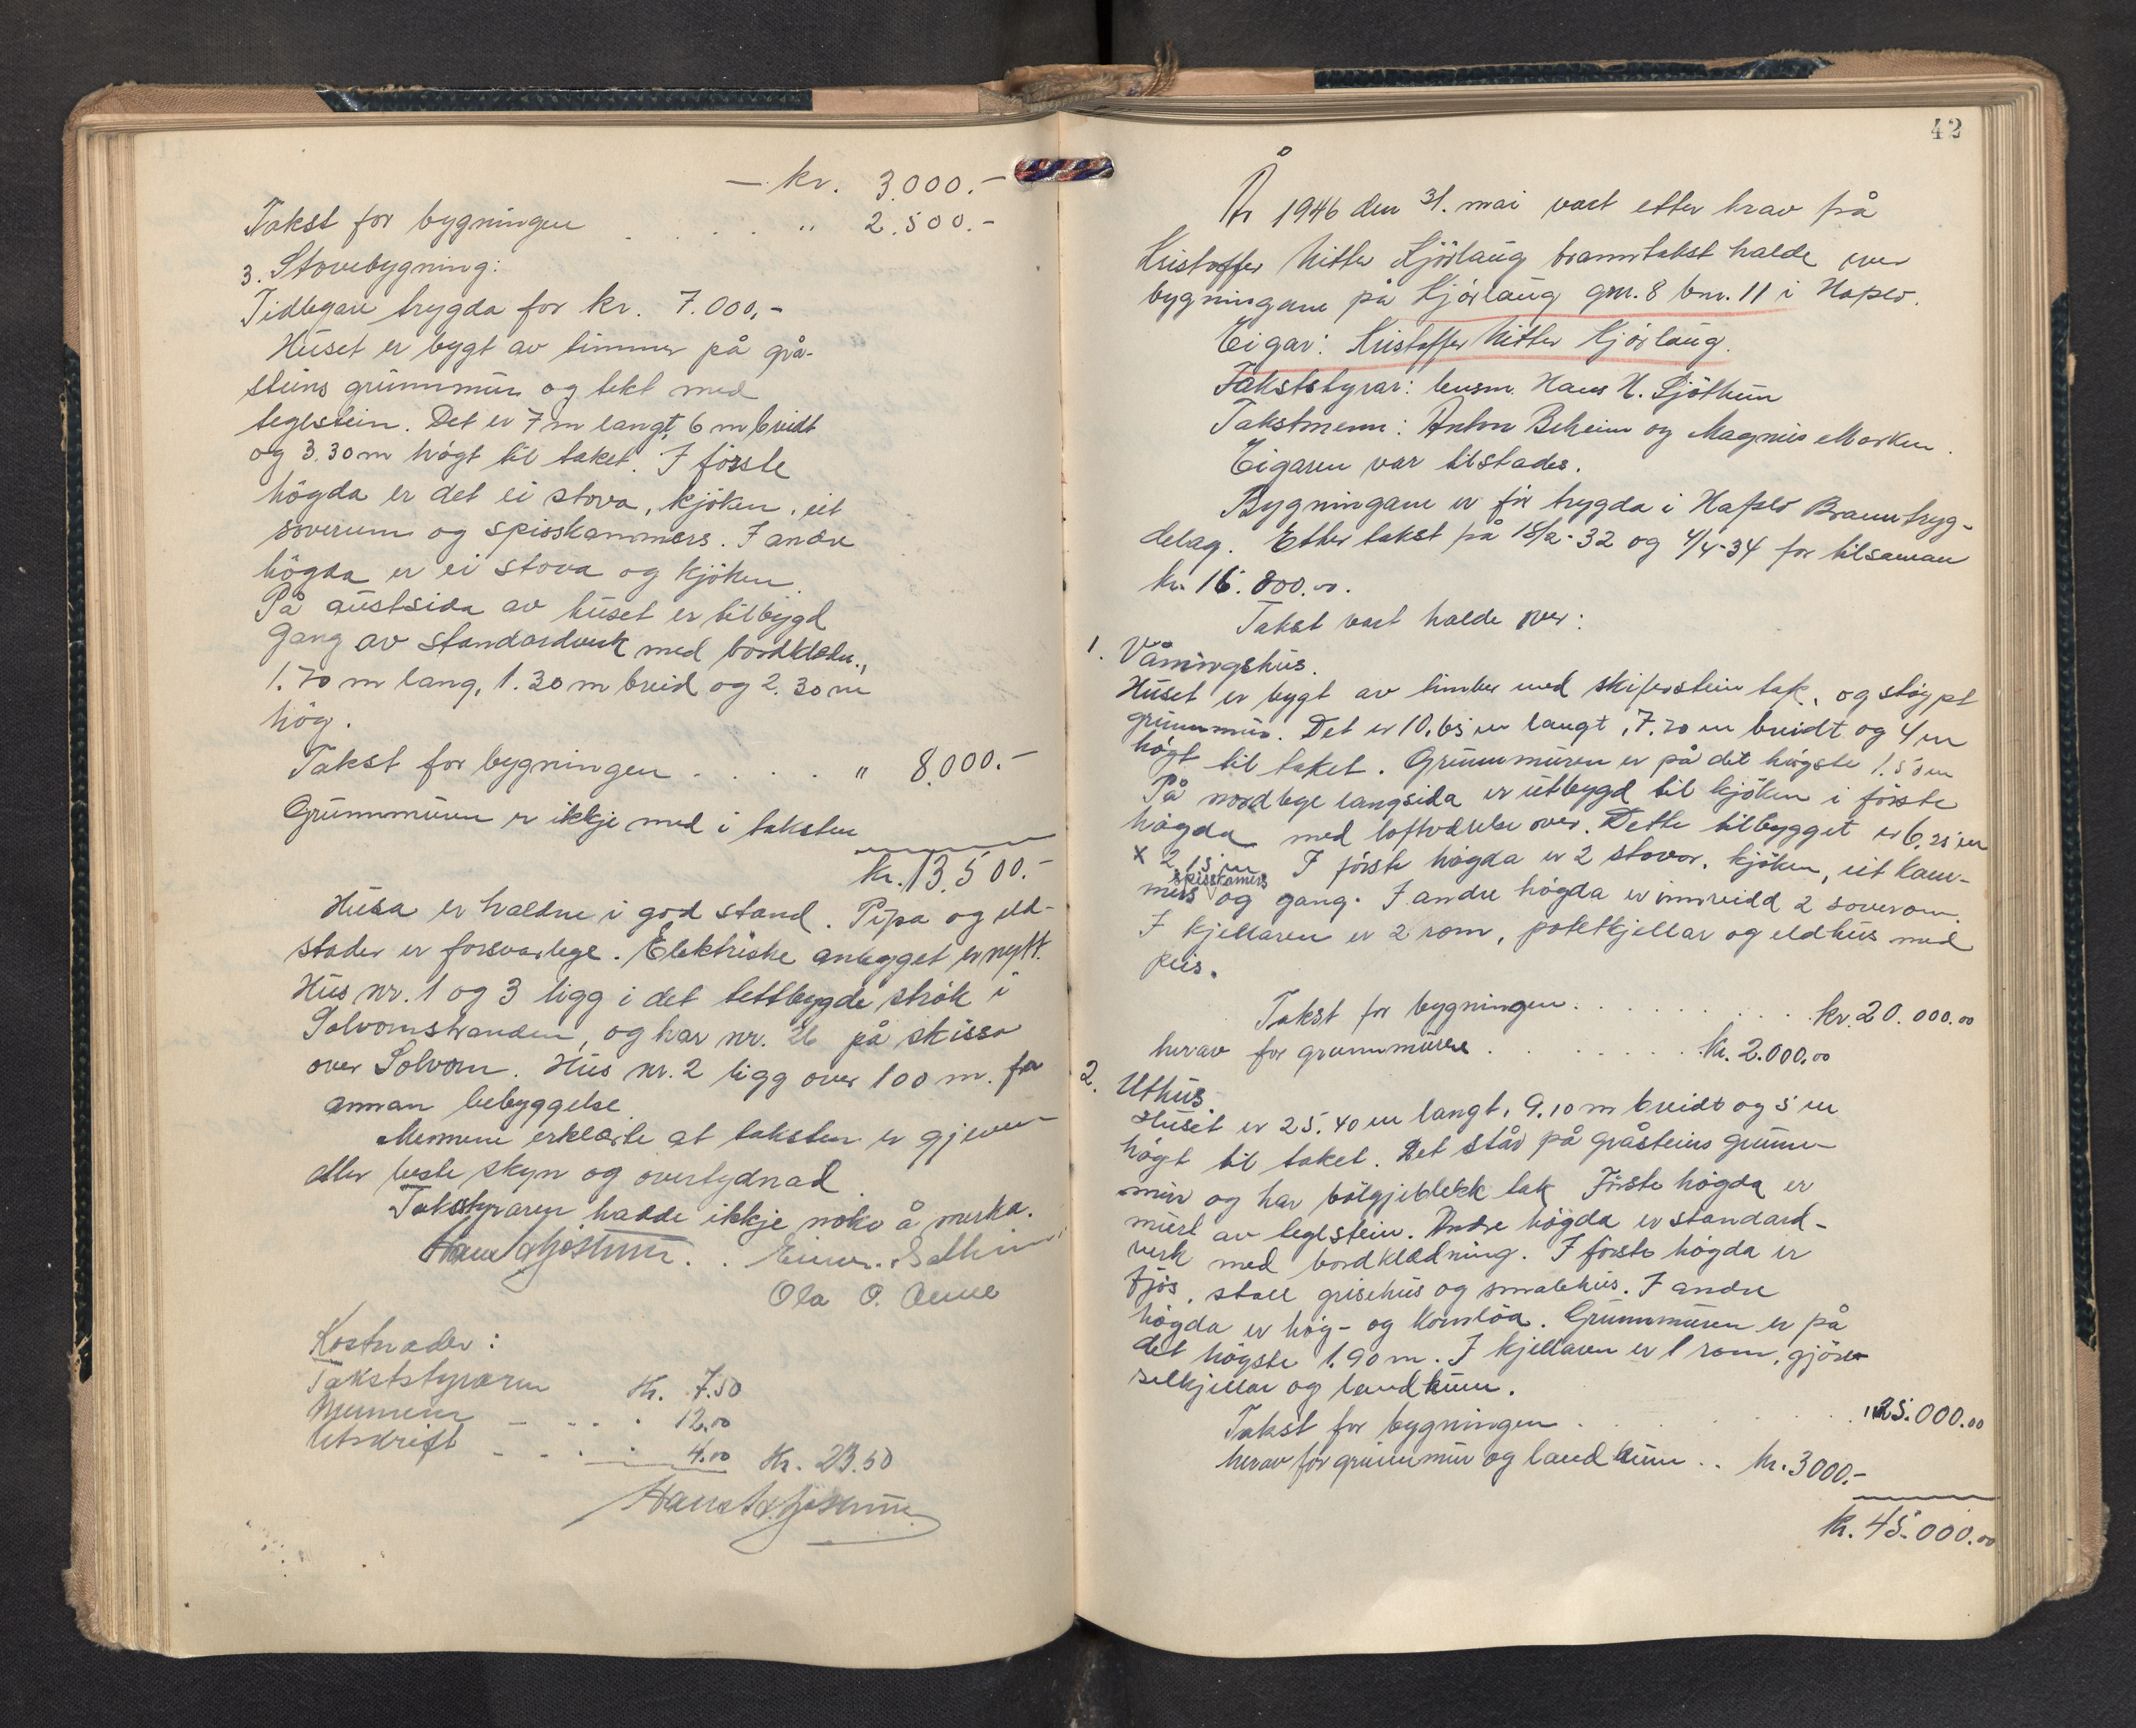 — kr. 3.000.-
Takst for bygningen . . . . " 2.500.-
3. Stovebygning:
Tidlegare trygda for kr. 7.000,-
Huset er bygt av timmer på grå-
steins grunnmur og tekt med
teglstein. Det er 7 m langt, 6 m breidt
og 3.30 m högt til taket. I förste
högda er det ei stova, kjöken, eit
soverum og spisskammers. I andre
högda er ei stova og kjöken.
På austsida av huset er tilbygd
Gang av standardverk med bordkledn.,
1.70 m lang, 1.30 m breid og 2.30 m
hög.
Takst for bygningen . . . . " 8.000.-
Grunnmuren er ikkje med i taksten
kr. 13.500.-
Husa er haldne i god stand. Pipa og eld-
stader er forsvarlege. Elektriske anlegget er nytt.
Hus nr. 1 og 3 ligg i det tettbygde strök i
Solvornstranden, og har nr. 26 på skissa
over Solvorn. Hus nr. 2 ligg over 100 m. fra
annan bebyggelse.
Mennene erklærte at taksten er gjeven
etter beste skyn og overtydnad.
Takstyraren hadde ikkje noko å merka.
Hans H. Sjöthun. Einar
Ola O.
Kostnader:
Takststyraren Kr. 7.50
Mennene - . . . 12.00
Utskrift - . . . 4.00 Kr. 23.50
Hans H. Sjöthun.
42
År 1946 den 31. mai vart etter krav på
Kristoffer Nitter Kjörlaug branntakst halde over
bygningane på Kjörlaug gnr. 8 bnr. 11 i Hafslo.
Eigar: Kristoffer Nitter Kjörlaug.
Takststyrar: lensm. Hans H. Sjöthun
Takstmenn: Anton Beheim og Magnus Morken.
Eigaren var tilstades.
Bygningane er för trygda i Hafslo Branntryg-
delag. Etter takst på 18/2-32 og 4/4-34 for tilsaman
kr. 16.800.00.
Takst vart halde over:
1. Våningshus.
Huset er bygt av timber med skiferstein tak, og stöypt
grunnmur. Det er 10.65 m langt, 7.70 m breidt og 4 m
högt til taket. Grunnmuren er på det högste 1.50 m
På nordlege langsida er utbygd til kjöken i förste
högda med loftværelse over. Dette tilbygget er 6,25 m
x 2,15 m I förste högda er 2 stover, kjöken, eit kam-
mers spisskamers og gang. I andre högda er innreidd 2 soverom.
I kjellaren er 2 rom, potetkjellar og eldhus med
peis.
Takst for bygningen . . . . . . . . . kr. 20.000.00
herav for grunnmuren . . . . . . . kr. 2.000.00
2. Uthus
Huset er 25.40 m langt, 9.10 m breidt og 5 m
högt til taket. Det står på gråsteins grunn-
mur og har bölgjeblekk tak Förste högda er
murt av teglstein. Andre högda er standard-
verk med bordklædning. I förste högda er
fjös, stall grisehus og smalehus. I andre
högda er höy- og kornlöa. Grunnmuren er på
det högste 1.90 m. I kjellaren er 1 rom, gjöse-
selkjellar og landkum.
Takst for bygningen . . . . . . . " 25.000.00
herav for grunnmur og landkum . . kr. 3000.-
kr. 45.000.00